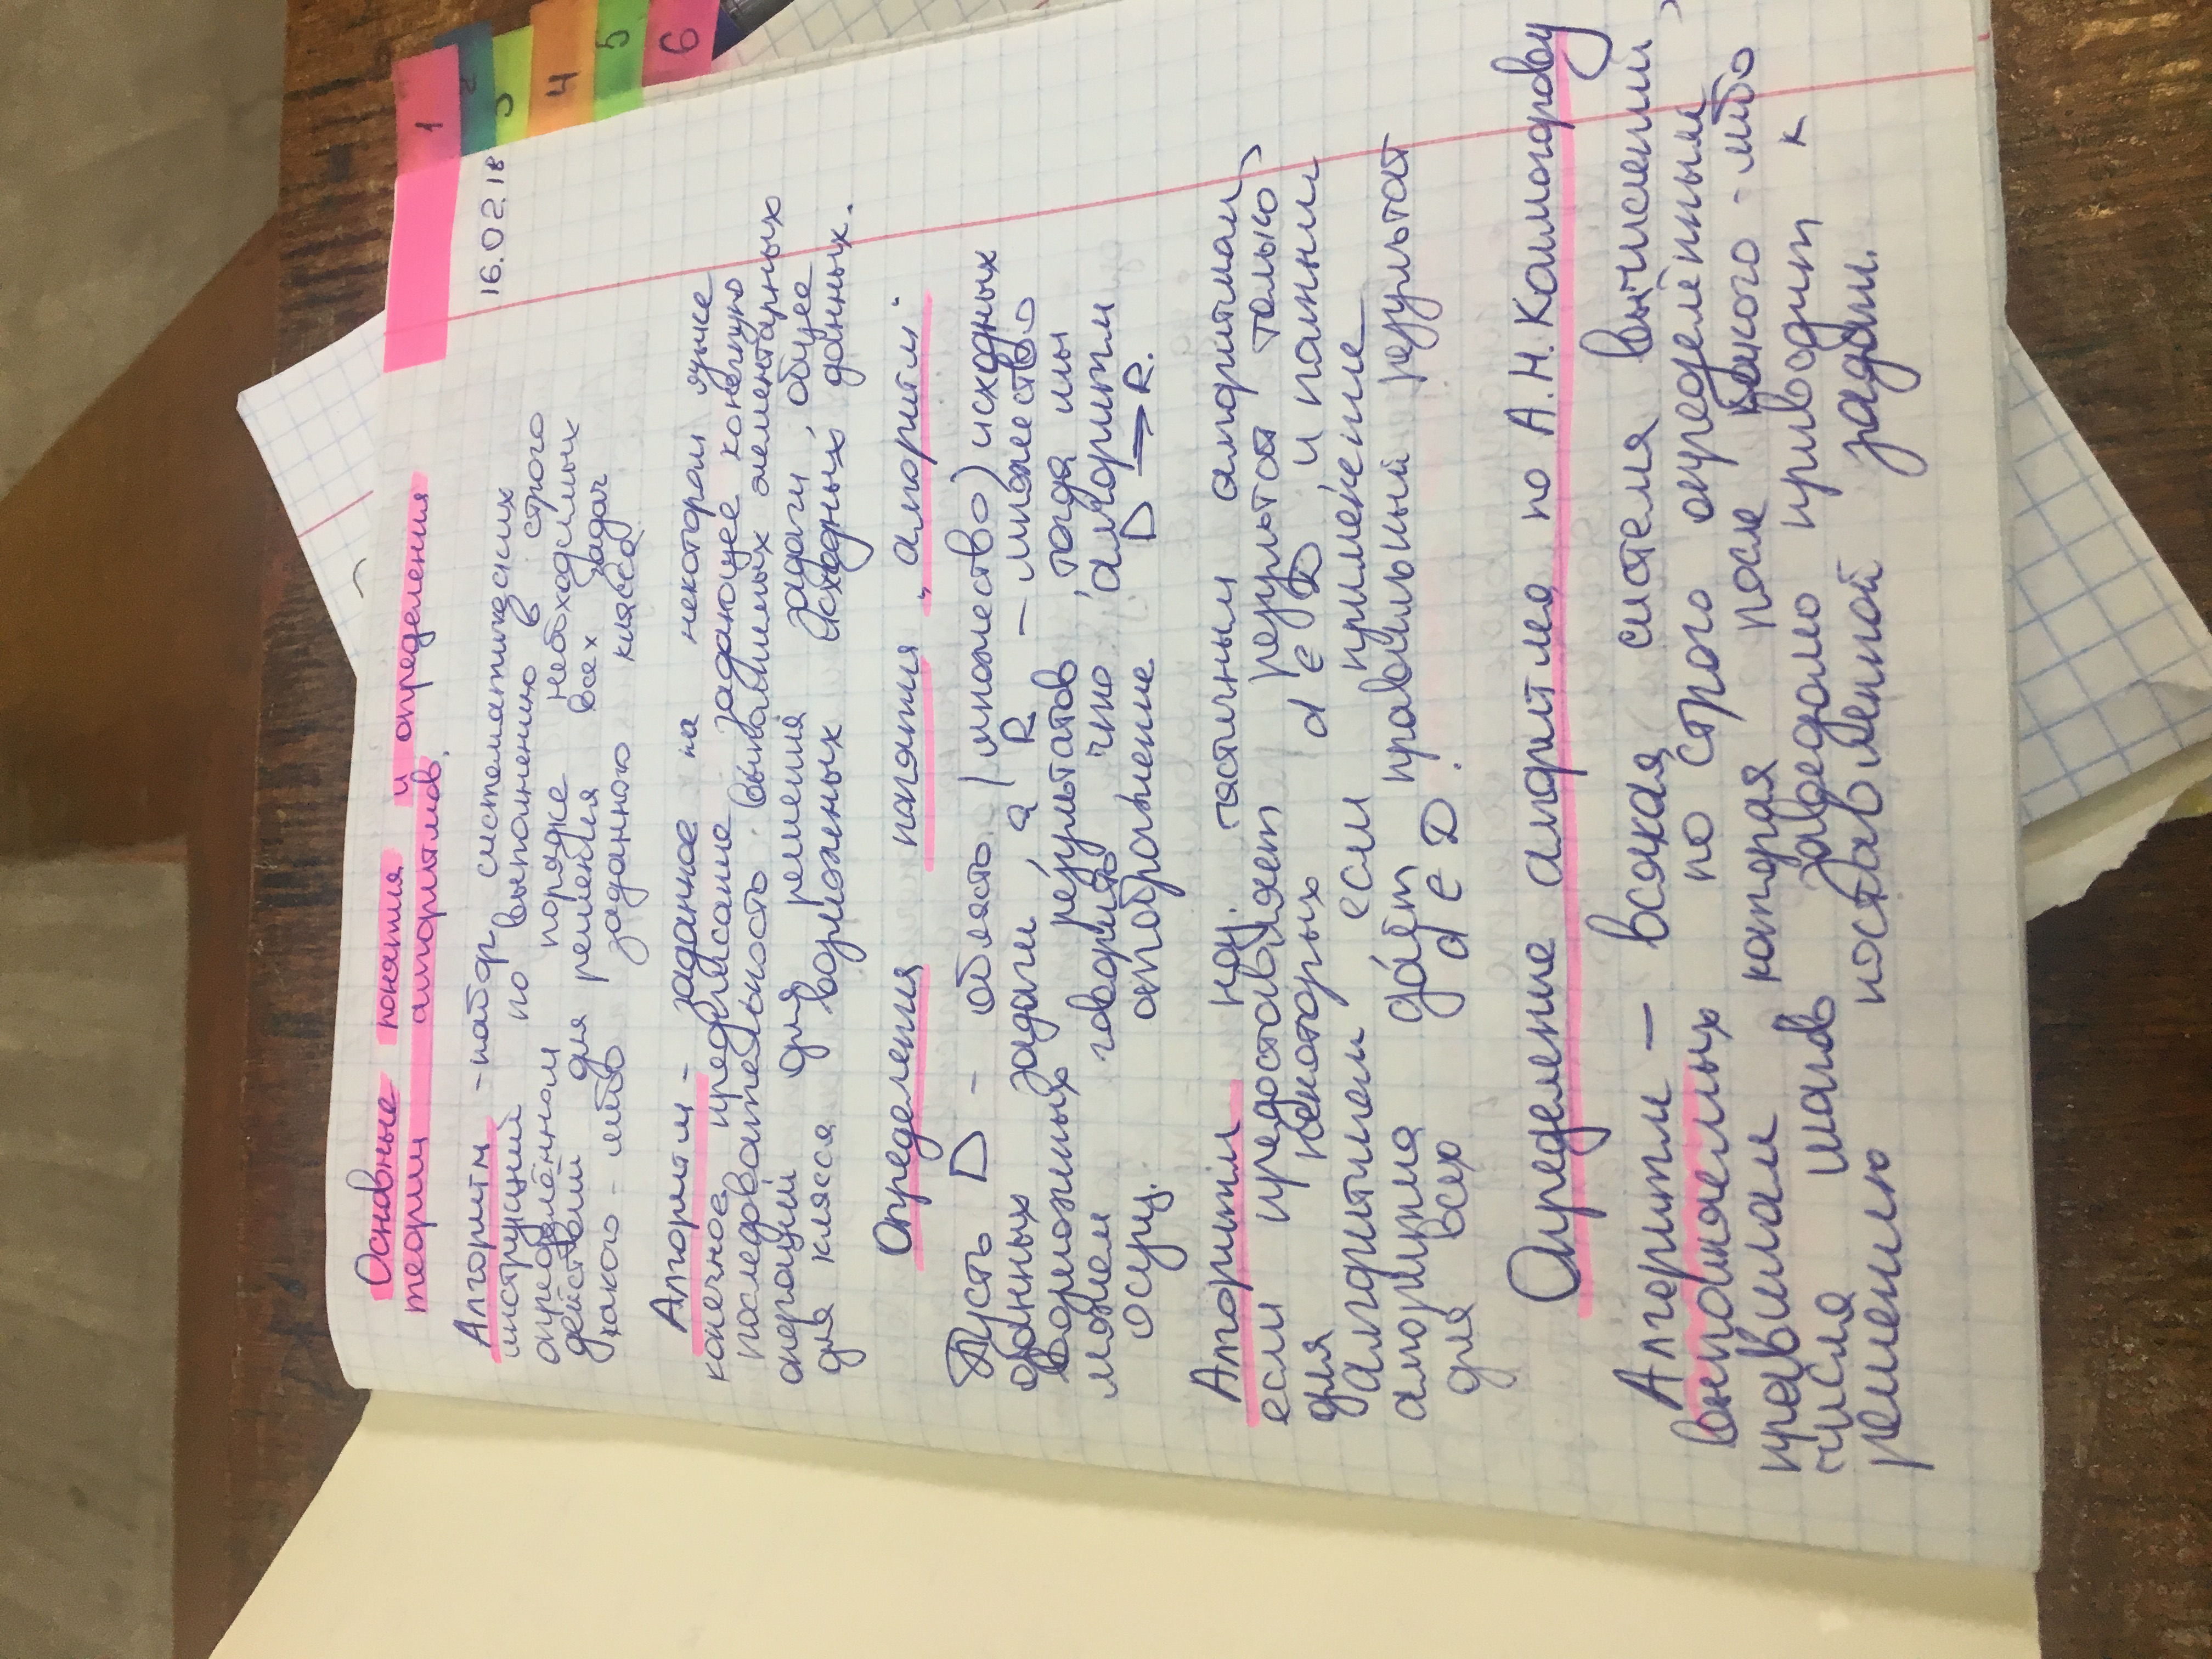 Основные понятия и определения
теории алгоритмов.
16.02.18
Алгоритм - набор систематических
инструкций по выполнению в строго
определённом порядке необходимых
действий для решения всех задач
какого-либо заданного класса.
Алгоритм - заданное на некотором языке
конечное предписание, задающее конечную
последовательность выполнимых элементарных
операций для решения задачи, общее
для класса возможных исходных данных.
Определения понятия „алгоритм"
Пусть D - область (множество) исходных
данных задачи, а R - множество
возможных результатов, тогда мы
можем говорить, что алгоритм
осущ. отображение D → R.
Алгоритм наз. частичным алгоритмом,
если предоставляет результат только
для некоторых d ∈ D, и полным
алгоритмом, если применение
алгоритма даёт правильный результат
для всех d ∈ D.
Определение алгоритма по А.Н. Колмогорову
Алгоритм - всякая система вычислений,
выполняемых по строго определённым
правилам, которая после какого-либо
числа шагов заведомо приводит к
решению поставленной задачи.
1
2
3
4
5
6